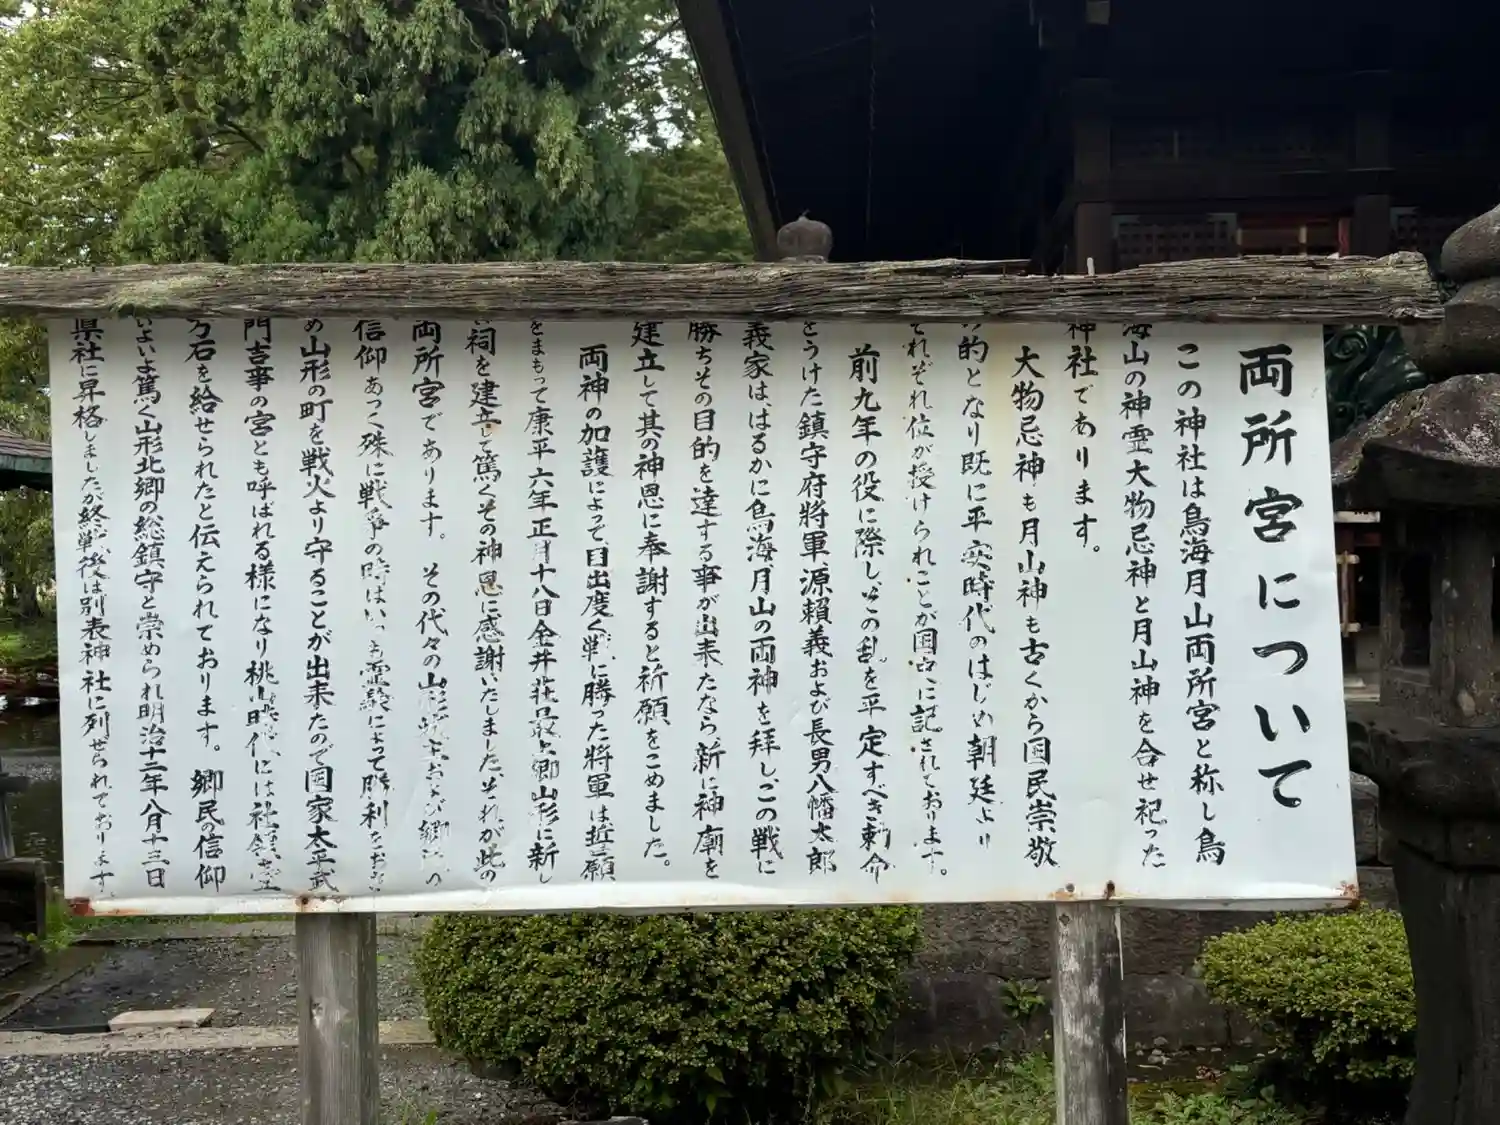 両所宮について
この神社は鳥海月山両所宮と称し鳥
海山の神霊大物忌神と月山神を合せ祀った
神社であります。
大物忌神も月山神も古くから国民崇敬
の的となり既に平安時代のはじめ朝廷より
それぞれ位が授けられことが国史に記されております。
前九年の役に際しこの乱を平定すべき勅命
をうけた鎮守府将軍源頼義および長男八幡太郎
義家は、はるかに鳥海月山の両神を拝し、この戦に
勝ちその目的を達する事が出来たなら、新に神廟を
建立して其の神恩に奉謝すると祈願をこめました。
両神の加護によって、目出度く戦に勝った将軍は誓願
をまもって康平六年正月十八日金井荘最上郷山形に新し
い祠を建立して篤くその神恩に感謝いたしました、それが此の
両所宮であります。その代々の山形城主および郷民の
信仰あつく殊に戦争の時はいつも霊験によって勝利をおさ
め山形の町を戦火より守ることが出来たので国家太平武
門吉事の宮とも呼ばれる様になり桃山時代には社領壱
万石を給せられたと伝えられております。郷民の信仰
いよいよ篤く山形北郷の総鎮守と崇められ明治十二年八月十三日
県社に昇格しましたが終戦後は別表神社に列せられております。